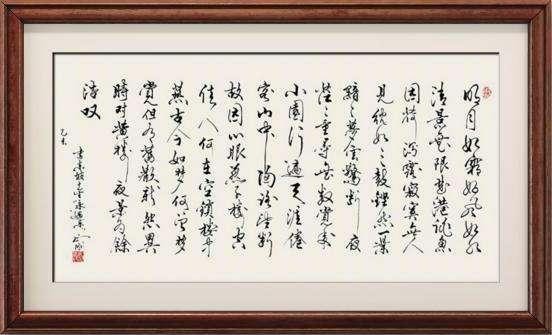 明月如霜好風如水
清景無限曲港跳魚
圓荷瀉露寂寞無人
見紞如三鼓鏗然一葉
黯黯夢雲驚斷夜
茫茫重尋無處覺來
小園行遍天涯倦
客山中歸路望斷
故園心眼燕子樓空
佳人何在空鎖樓中
燕古今如夢何曾夢
覺但有舊歡新怨異
時對黃樓夜景為餘
浩叹
乙未
書東坡先生永遇樂